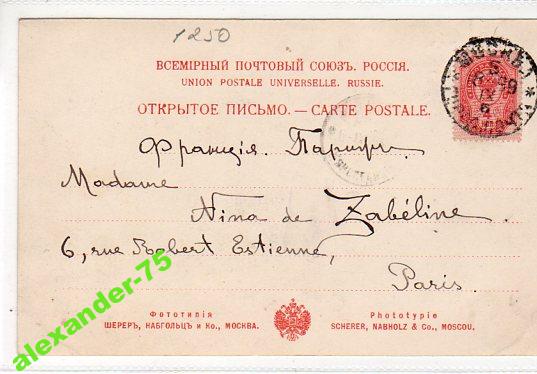 1250
ВСЕМІРНЫЙ ПОЧТОВЫЙ СОЮЗЪ. РОССІЯ.
UNION POSTALE UNIVERSELLE. RUSSIE.
ОТКРЫТОЕ ПИСЬМО. — CARTE POSTALE.
Франція. Парижъ.
Madame
Nina de Zabéline.
6, rue Robert Estienne,
Paris.
Фототипія
ШЕРЕРЪ, НАБГОЛЬЦЪ и Ко., МОСКВА.
Phototypie
SCHERER, NABHOLZ & Co., MOSCOU.
alexander-75